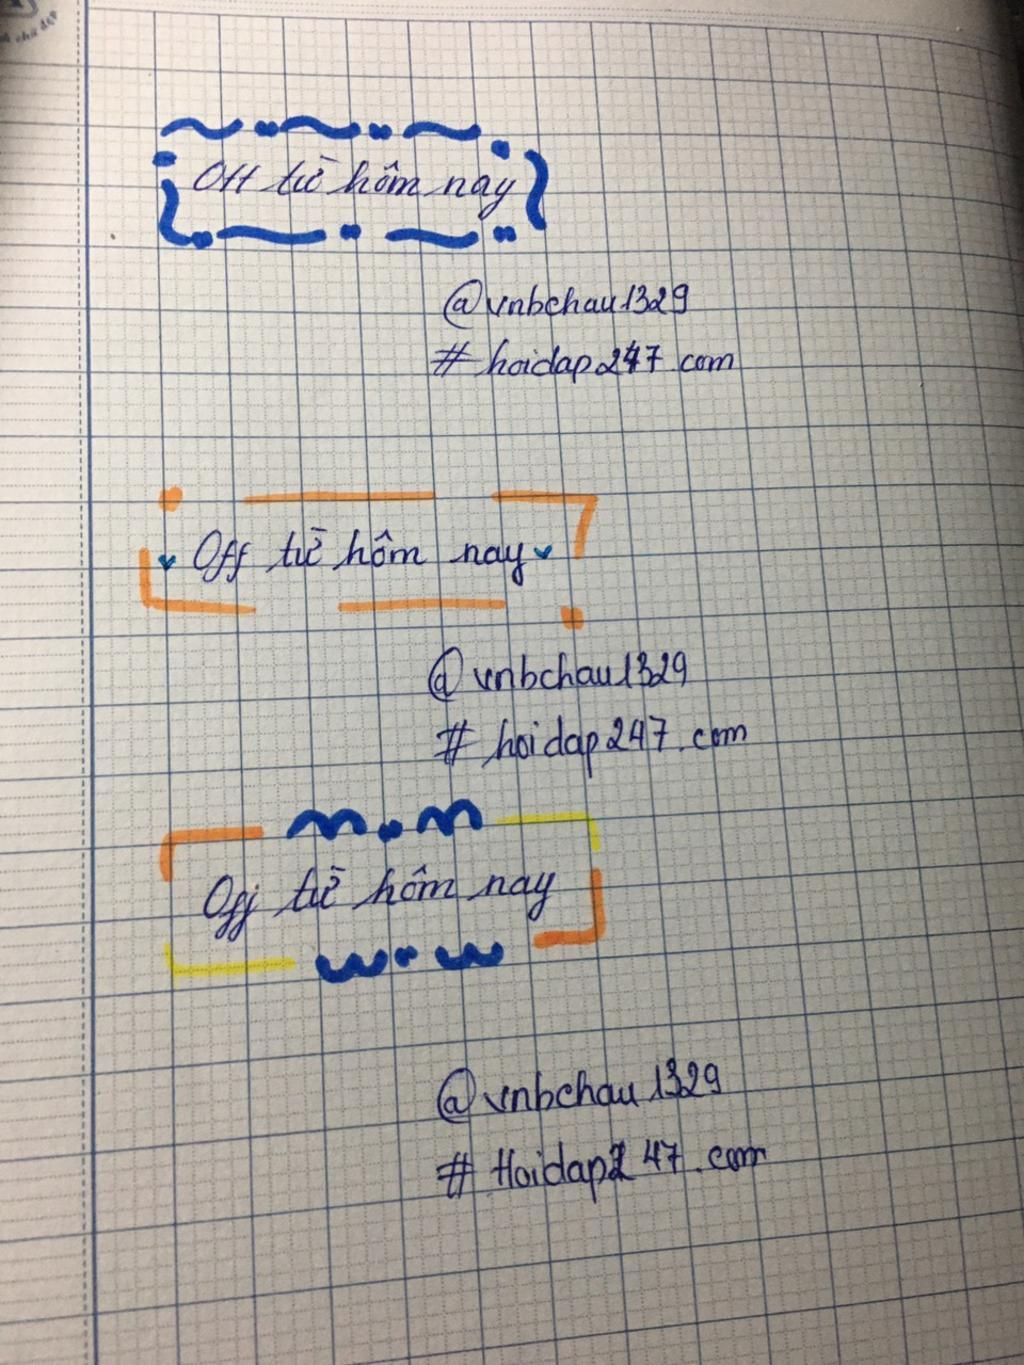 Off từ hôm nay
@vnbchau1329
# hoidap247.com
Off từ hôm nay
@vnbchau1329
# hoidap247.com
Off từ hôm nay
@vnbchau1329
# Hoidap247.com